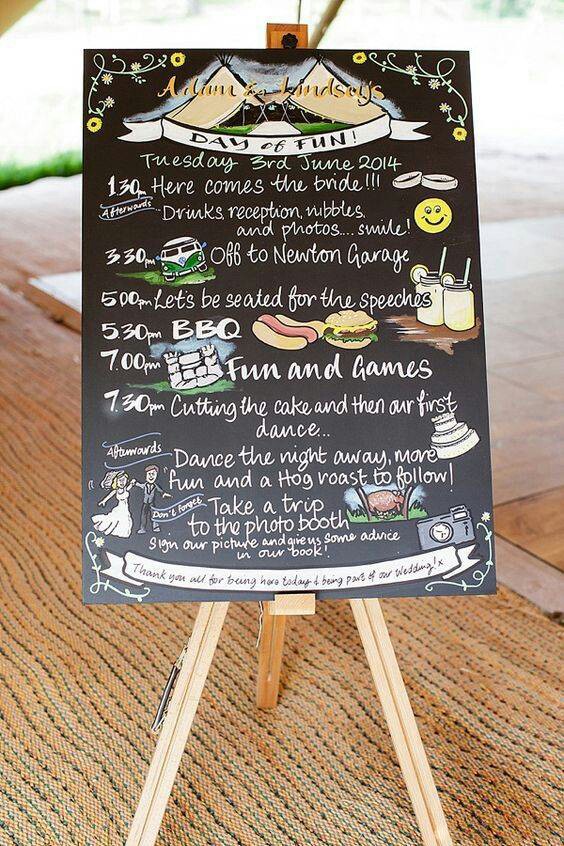 Adam & Lindsay's
DAY of FUN!
Tuesday 3rd June 2014
1.30pm Here comes the bride!!!
Afterwards Drinks, reception, nibbles,
and photos.... smile!
3 30pm Off to Newton Garage
5 00pm Let's be seated for the speeches
5.30pm BBQ
7.00pm Fun and Games
7.30pm Cutting the cake and then our first
dance...
Afterwards Dance the night away, more
fun and a Hog roast to follow!
Don't forget Take a trip
to the photo booth
Sign our picture and give us some advice
in our book!
Thank you all for being here today & being part of our wedding! x